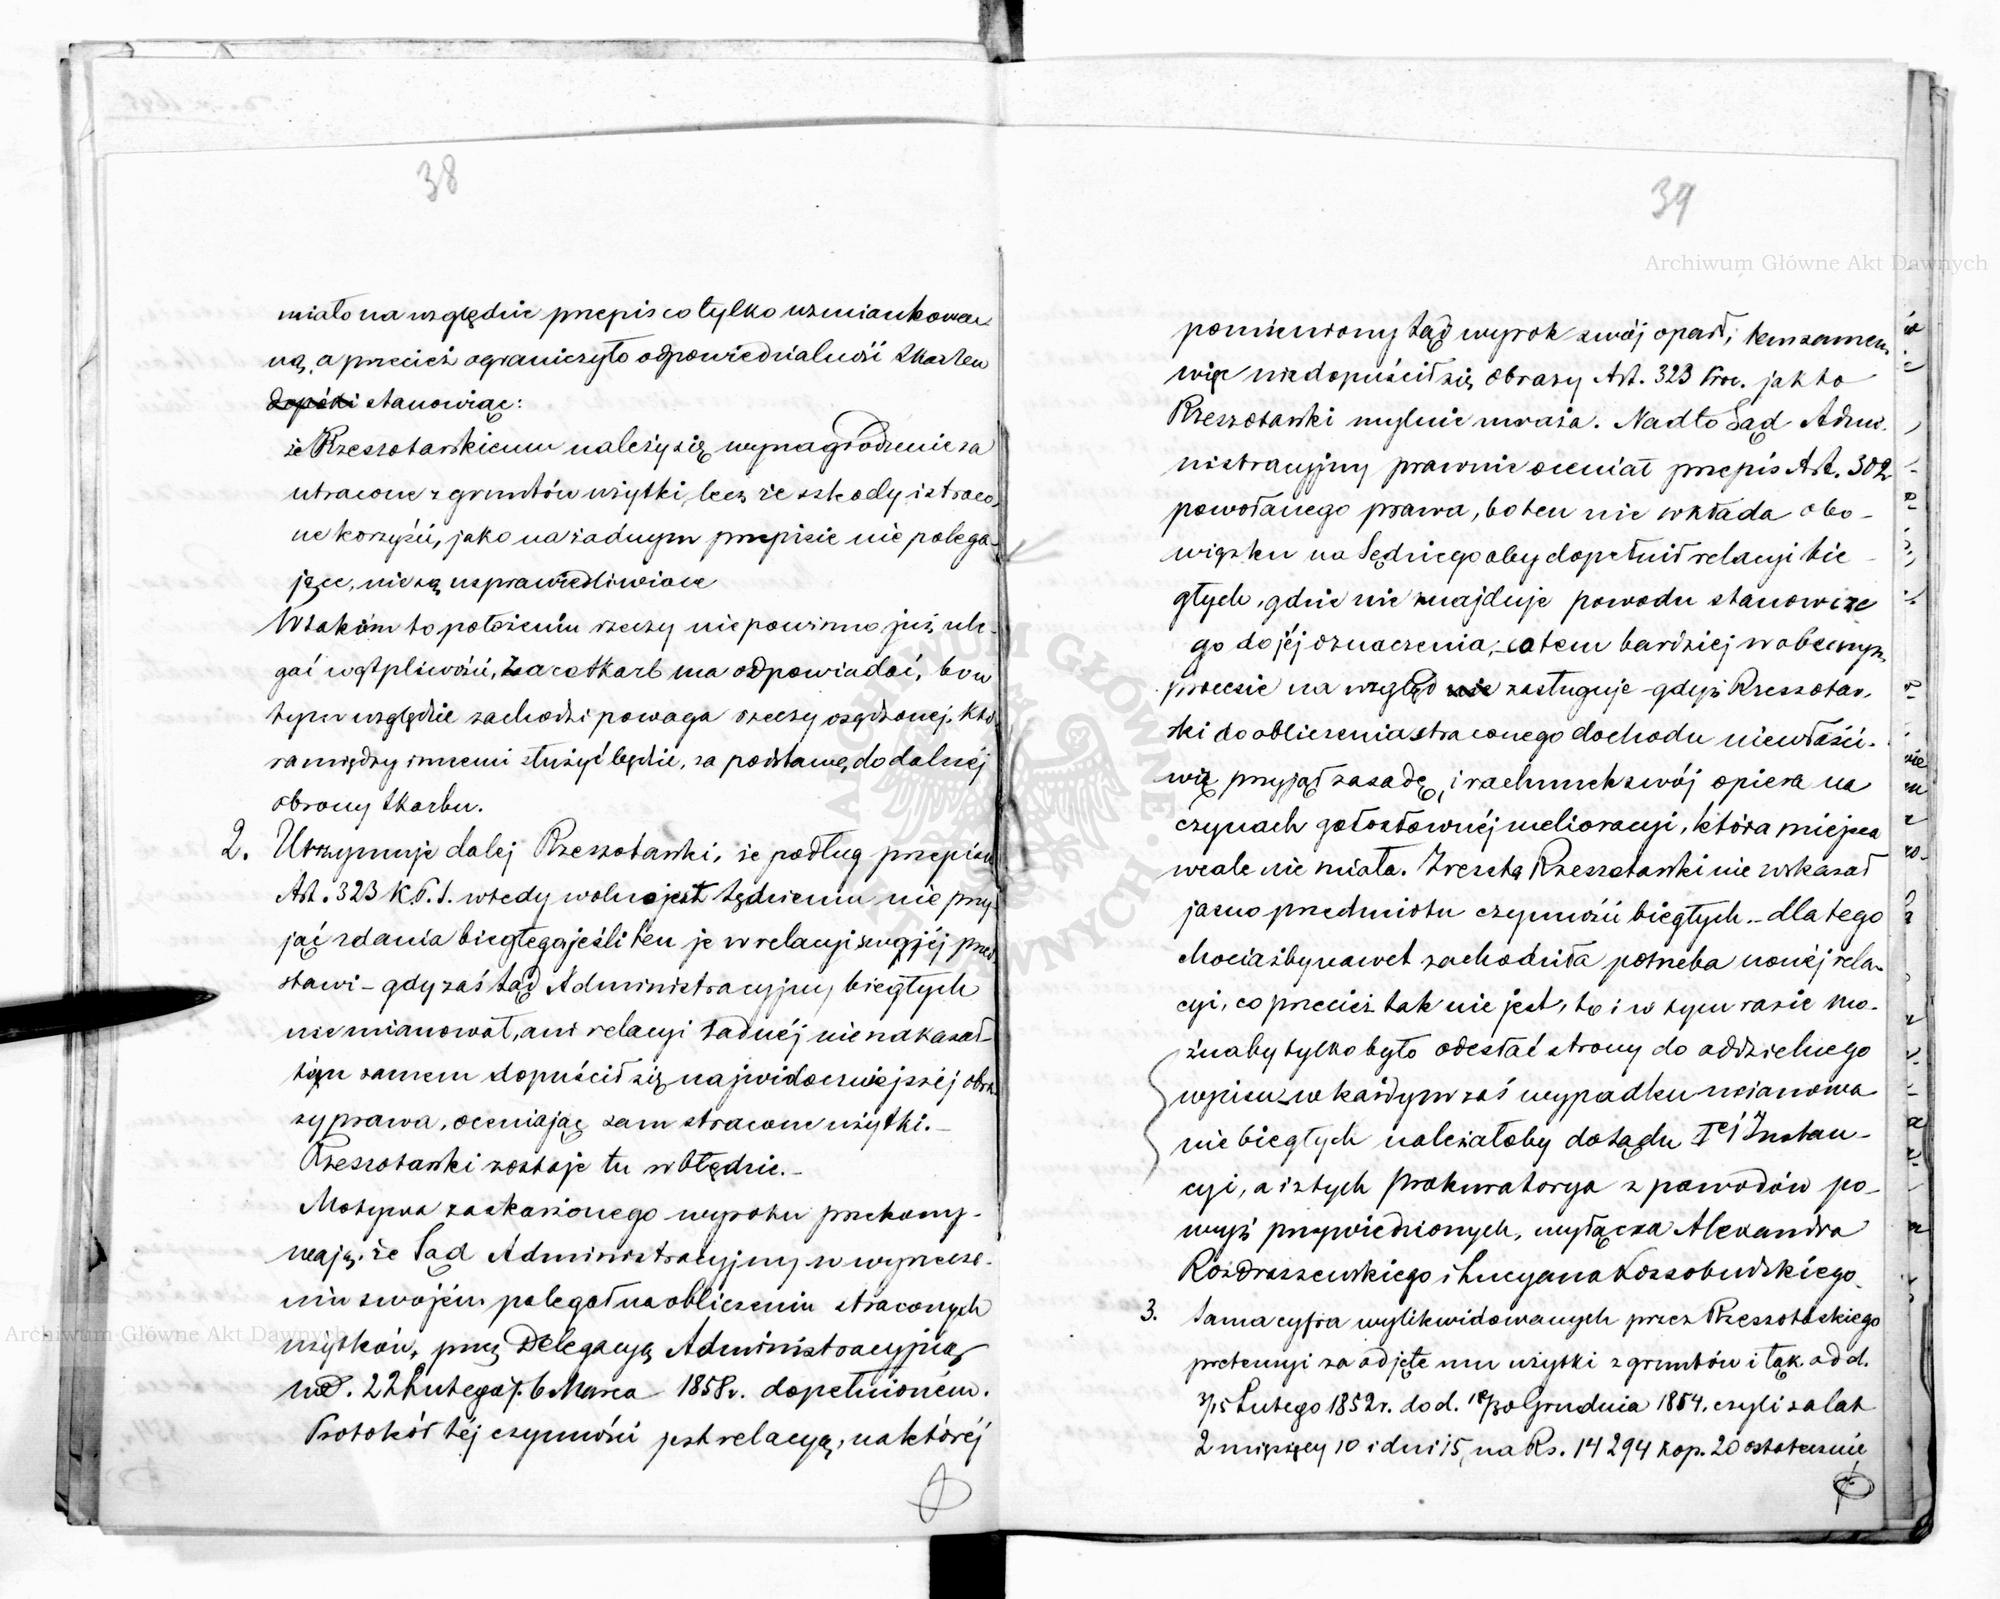 38
miało na względzie przepis co tylko wzmiankowa-
ną, a przecież ograniczyło odpowiedzialność Skarbu
stanowiąc:
że Rzeszotarskiemu należy się wynagrodzenie za
utracone z gruntów użytki, lecz że szkody i straco-
ne korzyści, jako na żadnym przepisie nie polega-
jące, nie są usprawiedliwione
W takim to położeniu rzeczy nie powinno już ule-
gać wątpliwości, za co Skarb ma odpowiadać, bo w
tym względzie zachodzi powaga rzeczy osądzonej, któ-
ra między innemi służyć będzie, za podstawę do dalszéj
obrony Skarbu.
2. Utrzymuje dalej Rzeszotarski, że podług przepisu
Art. 323 K.P.S. wtedy wolno jest Sędziemu nie przy-
jąć zdania biegłego jeśli ten je w relacyi swojéj przed-
stawi – gdy zaś Sąd Administracyjny biegłych
nie mianował, ani relacyi żadnéj nie nakazał –
tém samem dopuścił się najwidoczniejszéj obra-
zy prawa, oceniając sam stracone użytki. –
Rzeszotarski zostaje tu w błędzie. –
Motywa zaskarżonego wyroku przekony-
wają, że Sąd Administracyjny w wyrzecze-
niu swojém polegał na obliczeniu straconych
użytków, przez Delegacyą Administracyjną
w d. 22 Lutego/6 Marca 1858 r. dopełnioném.
Protokół téj czynności jest relacyą, na któréj
39
Archiwum Główne Akt Dawnych
pomieniony Sąd wyrok swój oparł; tem samem
więc nie dopuścił się obrazy Art. 323 Proc. jak to
Rzeszotarski mylnie uważa. Nadto Sąd Admi-
nistracyjny prawnie oceniał przepis Art. 302
powołanego prawa, bo ten nie wkłada obo-
wiązku na Sędziego aby dopełnił relacyi bie-
głych, gdzie nie znajduje powodu stanowcze
go do jéj oznaczenia, – co tem bardziej w obecnym
procesie na wzgląd zasługuje – gdyż Rzeszotar-
ski do obliczenia straconego dochodu niewłaści-
wie przyjął zasadę, i rachunek swój opiera na
czynach gołosłownéj melioracyi, która miejsca
wcale nie miała. Zresztą Rzeszotarski nie wskazał
jasno przedmiotu czynności biegłych – dla tego
chociażby nawet zachodziła potrzeba nowéj rela-
cyi, co przecież tak nie jest, to i w tym razie mo-
żnaby tylko było odesłać strony do oddzielnego
wpisu, w każdym zaś wypadku mianowa
nie biegłych należałoby do Sądu Iéj Instan-
cyi, a i z tych Prokuratorya z powodów po-
wyż przywiedzionych, wyłącza Alexandra
Rozdraszewskiego i Lucyana Kossobudzkiego.
3. Sama cyfra wylikwidowanych przez Rzeszotarskiego
pretensyi za odjęte mu użytki z gruntów i łąk od d.
3/15 Lutego 1852 r. do d. 18/30 Grudnia 1854, czyli za lat
2 miesięcy 10 i dni 15, na Rs. 14294 kop. 20 ostatecznie
Archiwum Główne Akt Dawnych
ARCHIWUM GŁÓWNE